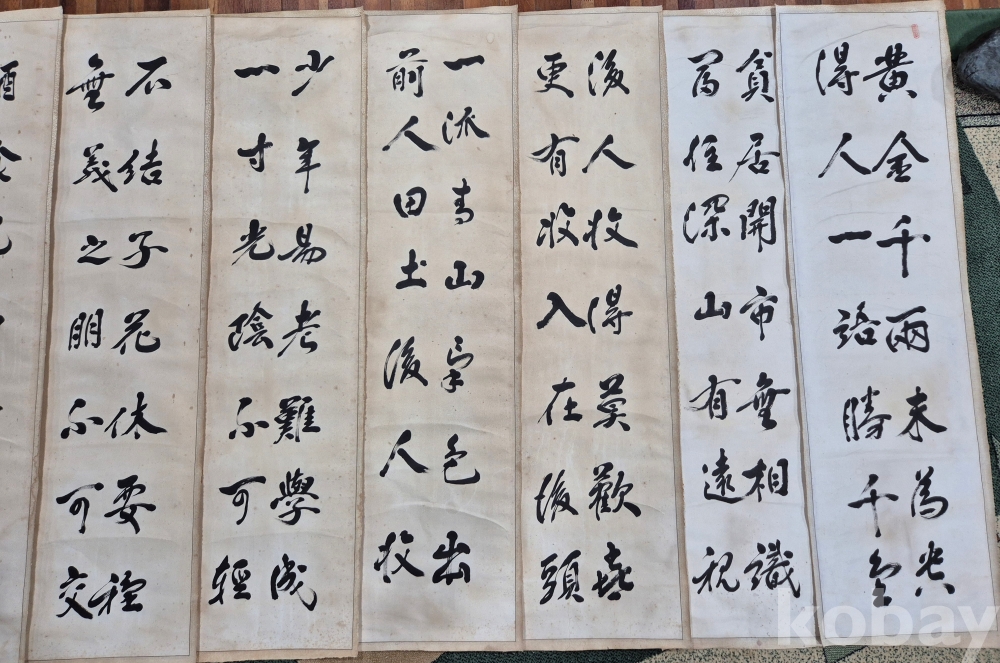 黃金千兩未為貴
得人一語勝千金
貧居鬧市無相識
富住深山有遠親
後人收得莫歡喜
更有收人在後頭
一派青山景色幽
前人田土後人收
少年易老難學成
一寸光陰不可輕
不結子花休要種
無義之朋不可交
kobay